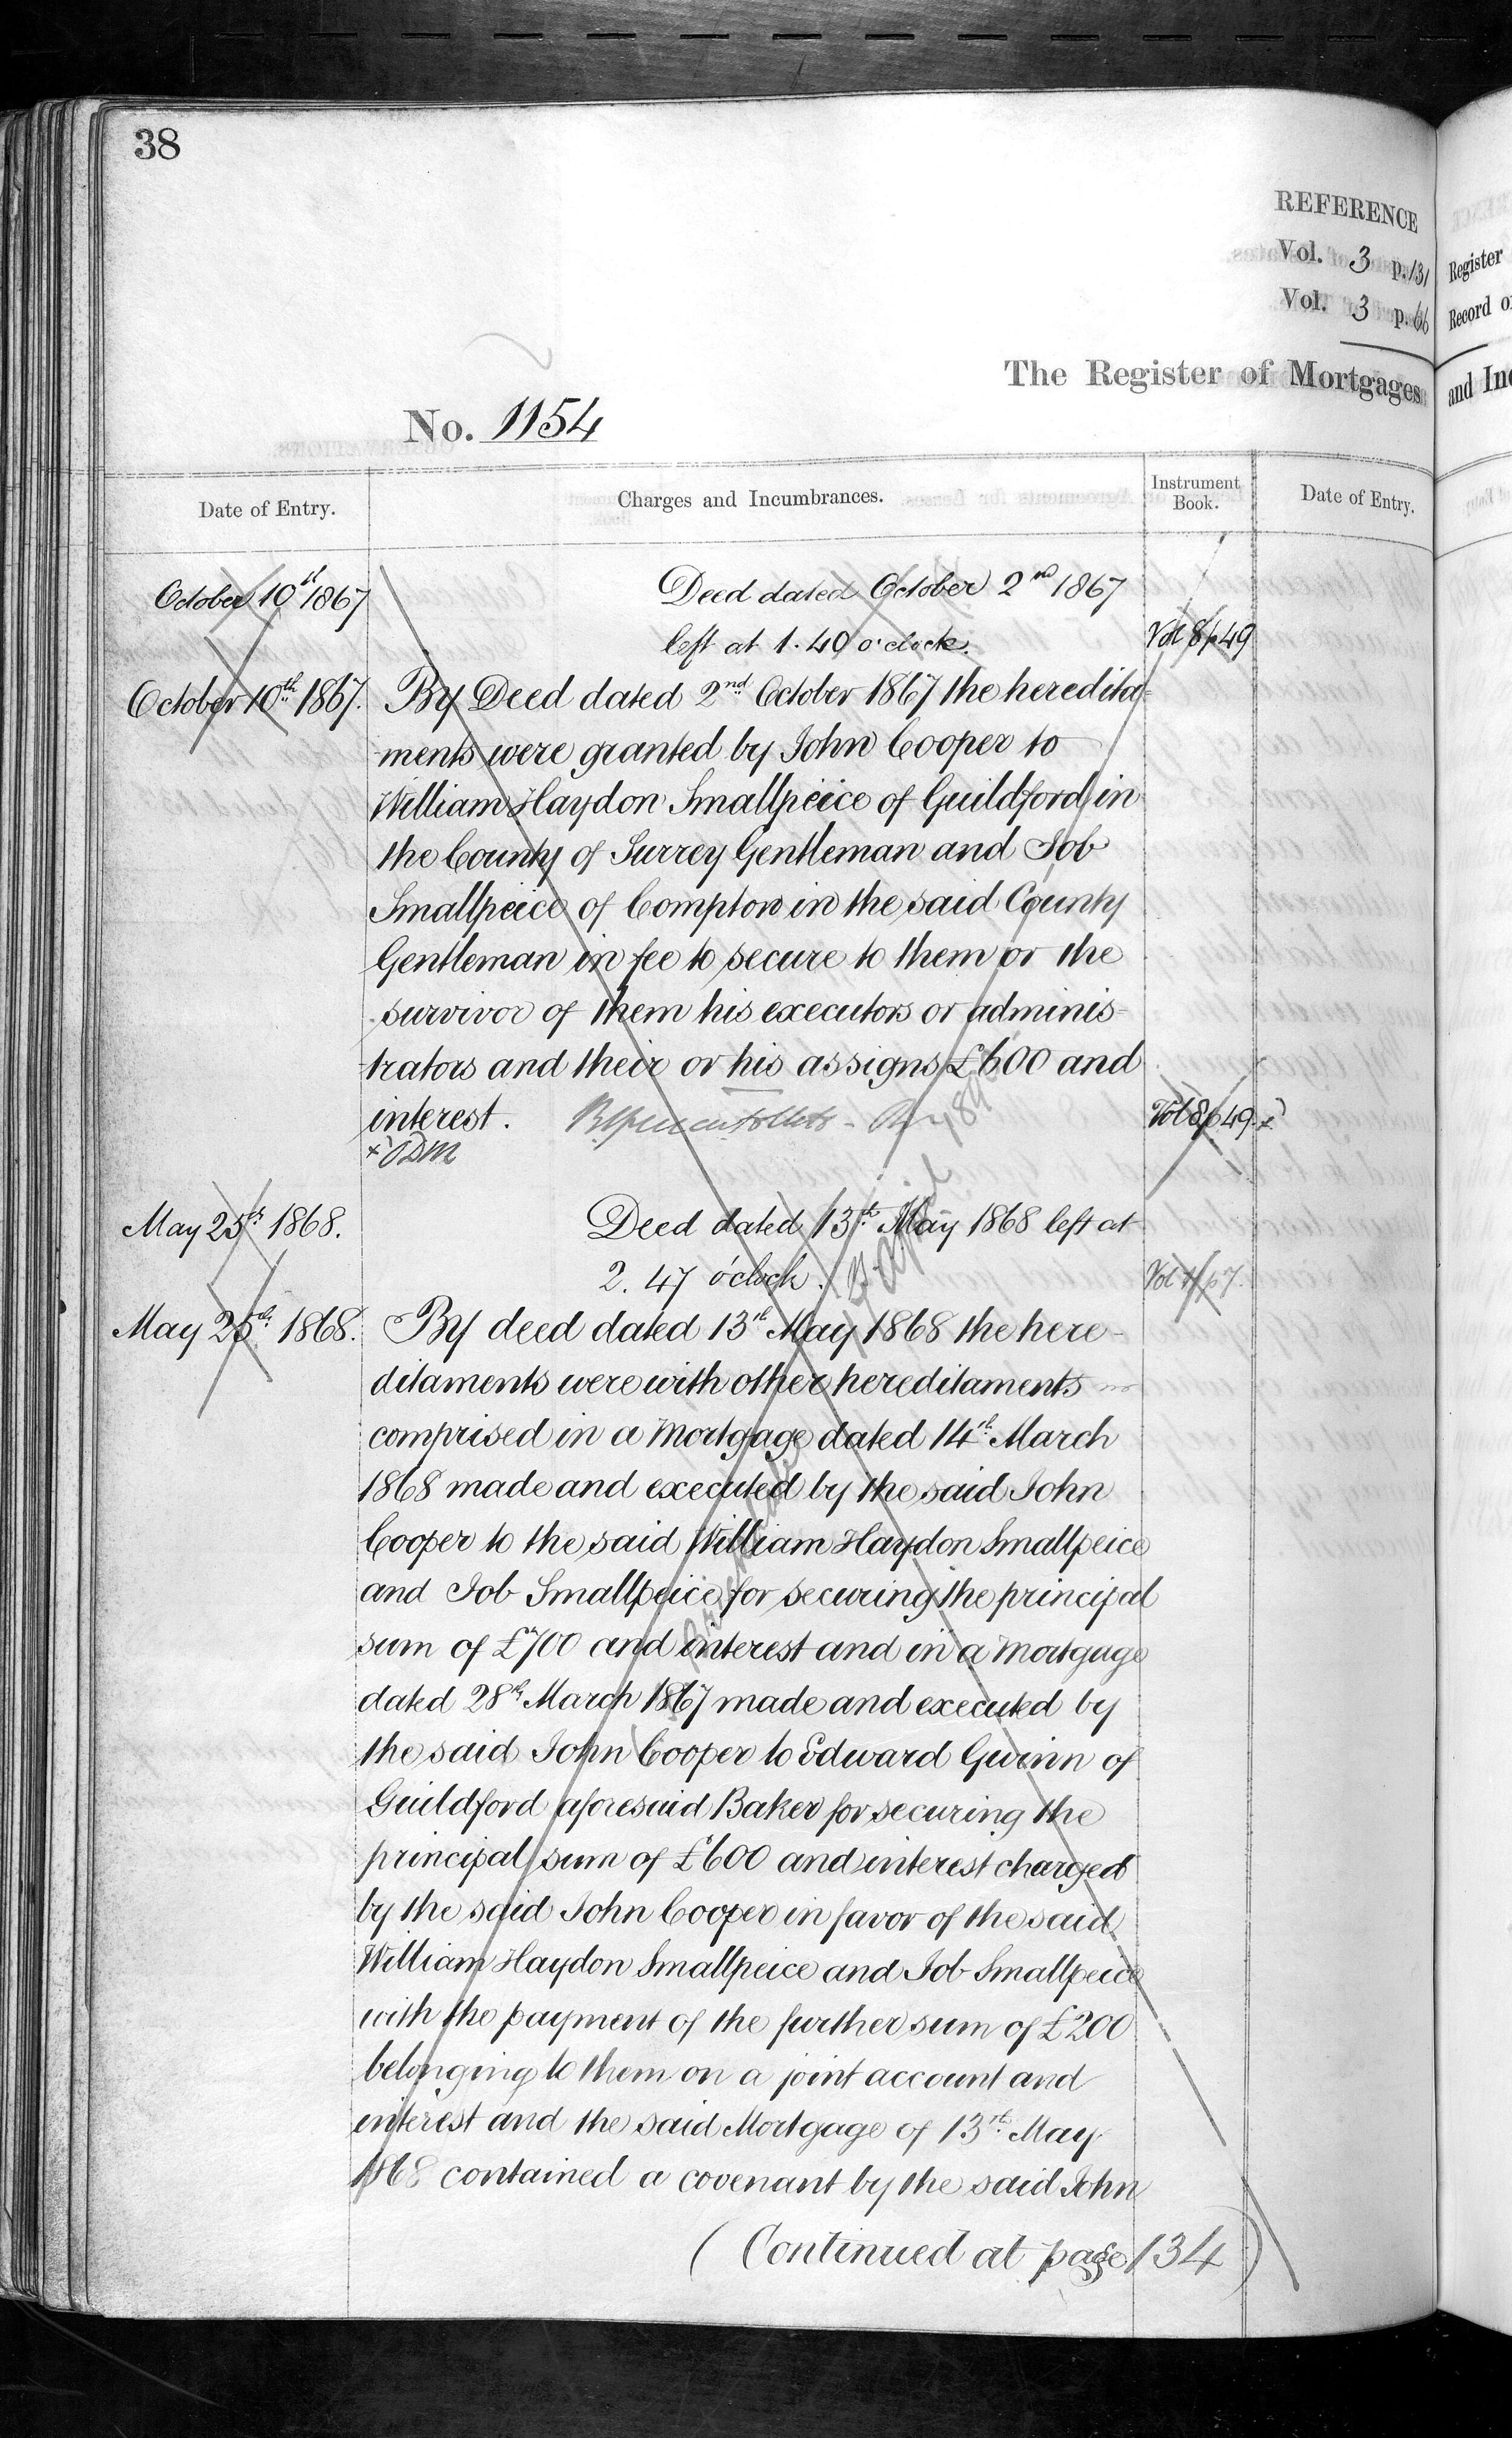 38
REFERENCE
Vol. 3 p. 131
Vol. 3 p. 66
Register
Record o
The Register of Mortgages
and Inc
No. 1154
Date of Entry.
Charges and Incumbrances.
Instrument Book.
Date of Entry.
October 10th 1867
Deed dated October 2nd 1867
left at 1.40 o'clock.
Vol 8 p 49
October 10th 1867.
By Deed dated 2nd October 1867 the heredita-
-ments were granted by John Cooper to
William Haydon Smallpeice of Guildford in
the County of Surrey Gentleman and Job
Smallpeice of Compton in the said County
Gentleman in fee to secure to them or the
survivor of them his executors or adminis-
-trators and their or his assigns £600 and
interest.
Vol 8 p 49. x
May 25th 1868.
Deed dated 13th May 1868 left at
2.47 o'clock.
May 25th 1868.
By deed dated 13th May 1868 the here-
ditaments were with other hereditaments
comprised in a Mortgage dated 14th March
1868 made and executed by the said John
Cooper to the said William Haydon Smallpeice
and Job Smallpeice for securing the principal
sum of £700 and interest and in a Mortgage
dated 28th March 1867 made and executed by
the said John Cooper to Edward Gwinn of
Guildford aforesaid Baker for securing the
principal sum of £600 and interest charged
by the said John Cooper in favor of the said
William Haydon Smallpeice and Job Smallpeice
with the payment of the further sum of £200
belonging to them on a joint account and
interest and the said Mortgage of 13th May
1868 contained a covenant by the said John
(Continued at page 134)